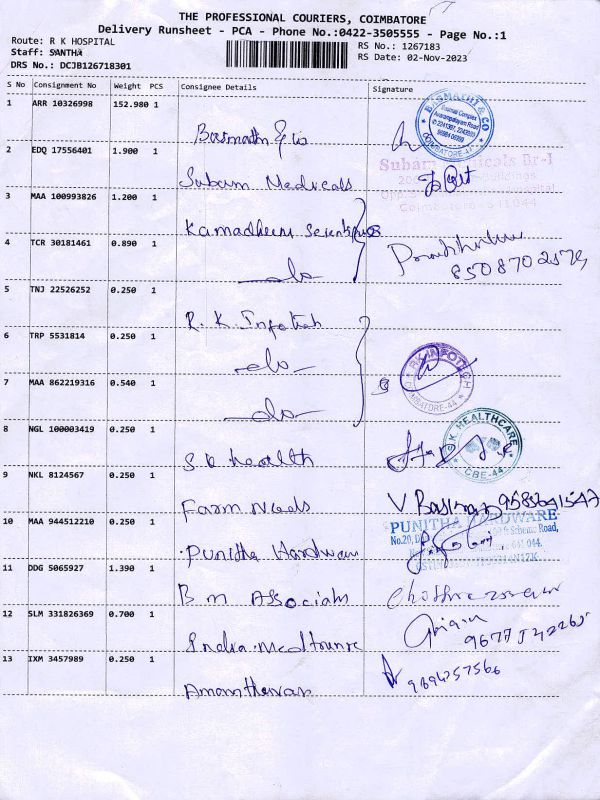 THE PROFESSIONAL COURIERS, COIMBATORE
Delivery Runsheet - PCA - Phone No.:0422-3505555 - Page No.:1
Route: R K HOSPITAL
Staff: SANTHA
DRS No.: DCJB126718301
RS No.: 1267183
RS Date: 02-Nov-2023
S No Consignment No Weight PCS Consignee Details Signature
1 ARR 10326998 152.980 1
BASMATHI & CO
COIMBATORE-44
2 EDQ 17556401 1.900 1
Subam Medicals
Subam Br-I
3 MAA 100993826 1.200 1
Kamadhenu
4 TCR 30181461 0.890 1
do
8508702579
5 TNJ 22526252 0.250 1
R. K. Infotech
6 TRP 5531814 0.250 1
do
RK INFOTECH
COIMBATORE-44
7 MAA 862219316 0.540 1
do
8 NGL 100003419 0.250 1
S K health
S.K. HEALTHCARE
CBE-44
9 NKL 8124567 0.250 1
Farm Needs
10 MAA 944512210 0.250 1
Punitha Hardware
PUNITHA HARDWARE
11 DDG 5065927 1.390 1
B m Associats
12 SLM 331826369 0.700 1
Indra
13 IXM 3457989 0.250 1